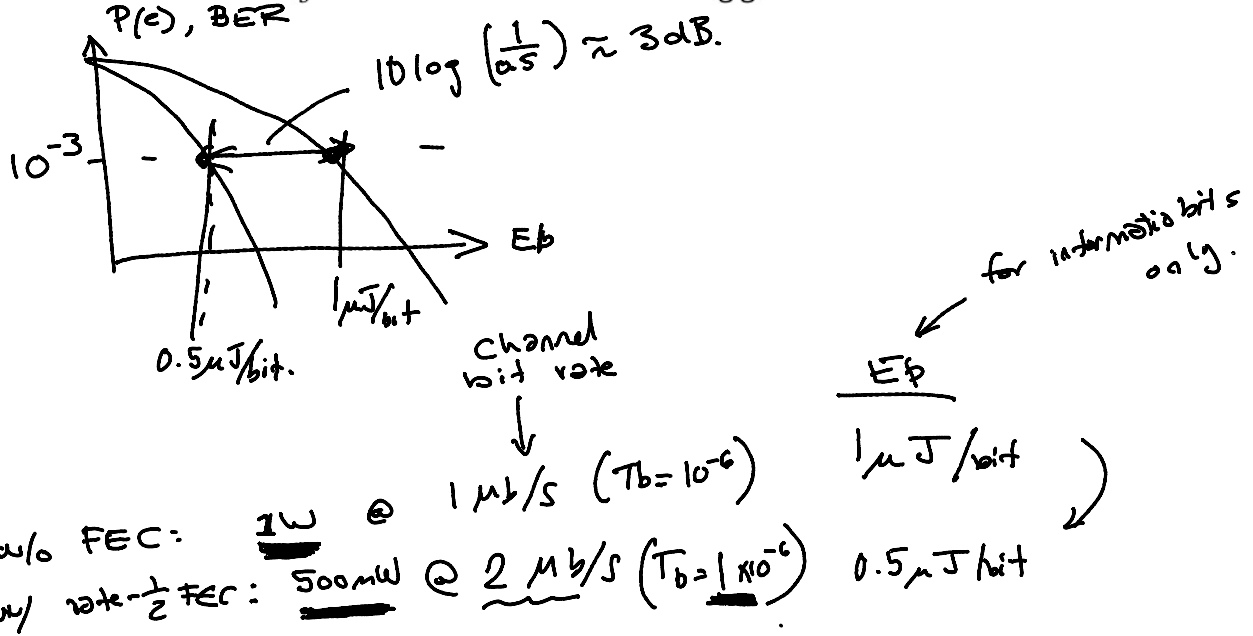 P(e), BER
10 log (1/0.5) ≈ 3 dB.
10^-3
Eb
1 μJ/bit
0.5 μJ/bit.
for informatio bits
only.
Channel
bit rate
Eb
1 Mb/s (Tb = 10^-6) 1 μJ/bit
w/o FEC: 1W @
w/ rate-1/2 FEC: 500mW @ 2 Mb/s (Tb = 1 x10^-6) 0.5 μJ/bit